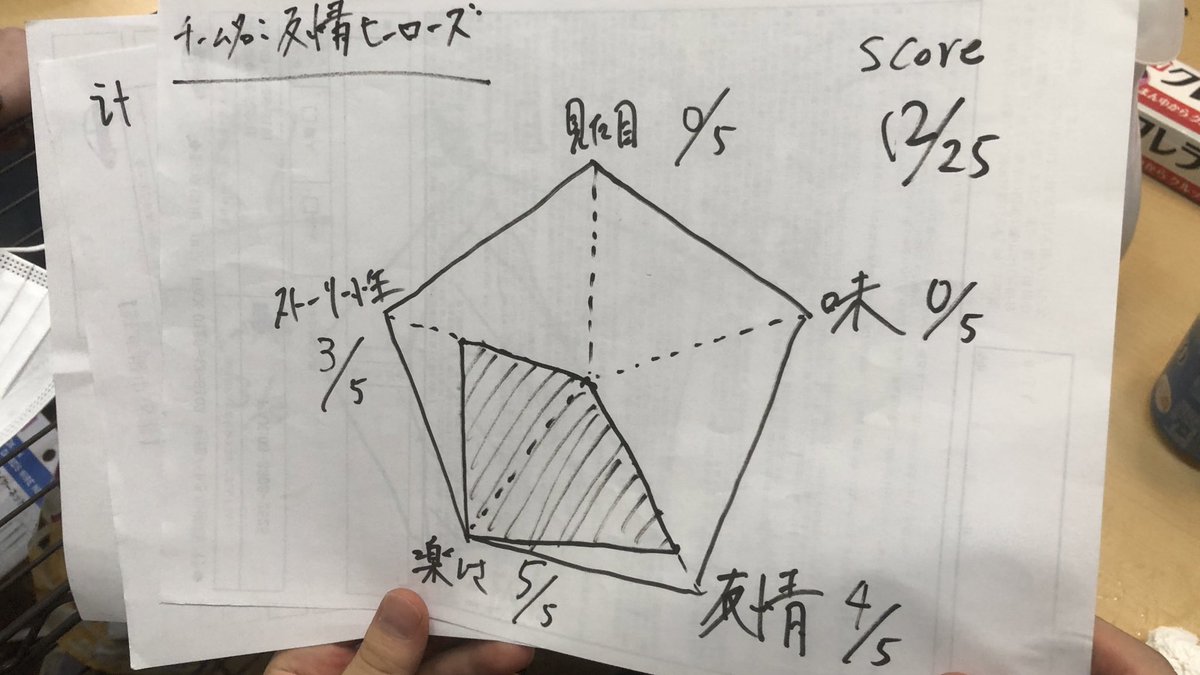 チーム名:友情ヒーローズ
計
score
12/25
見た目 0/5
味 0/5
ストーリー性
3/5
楽しさ 5/5
友情 4/5
クレラ